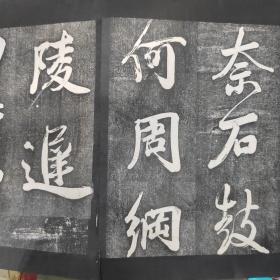 奈石鼓
何周綱
陵遲